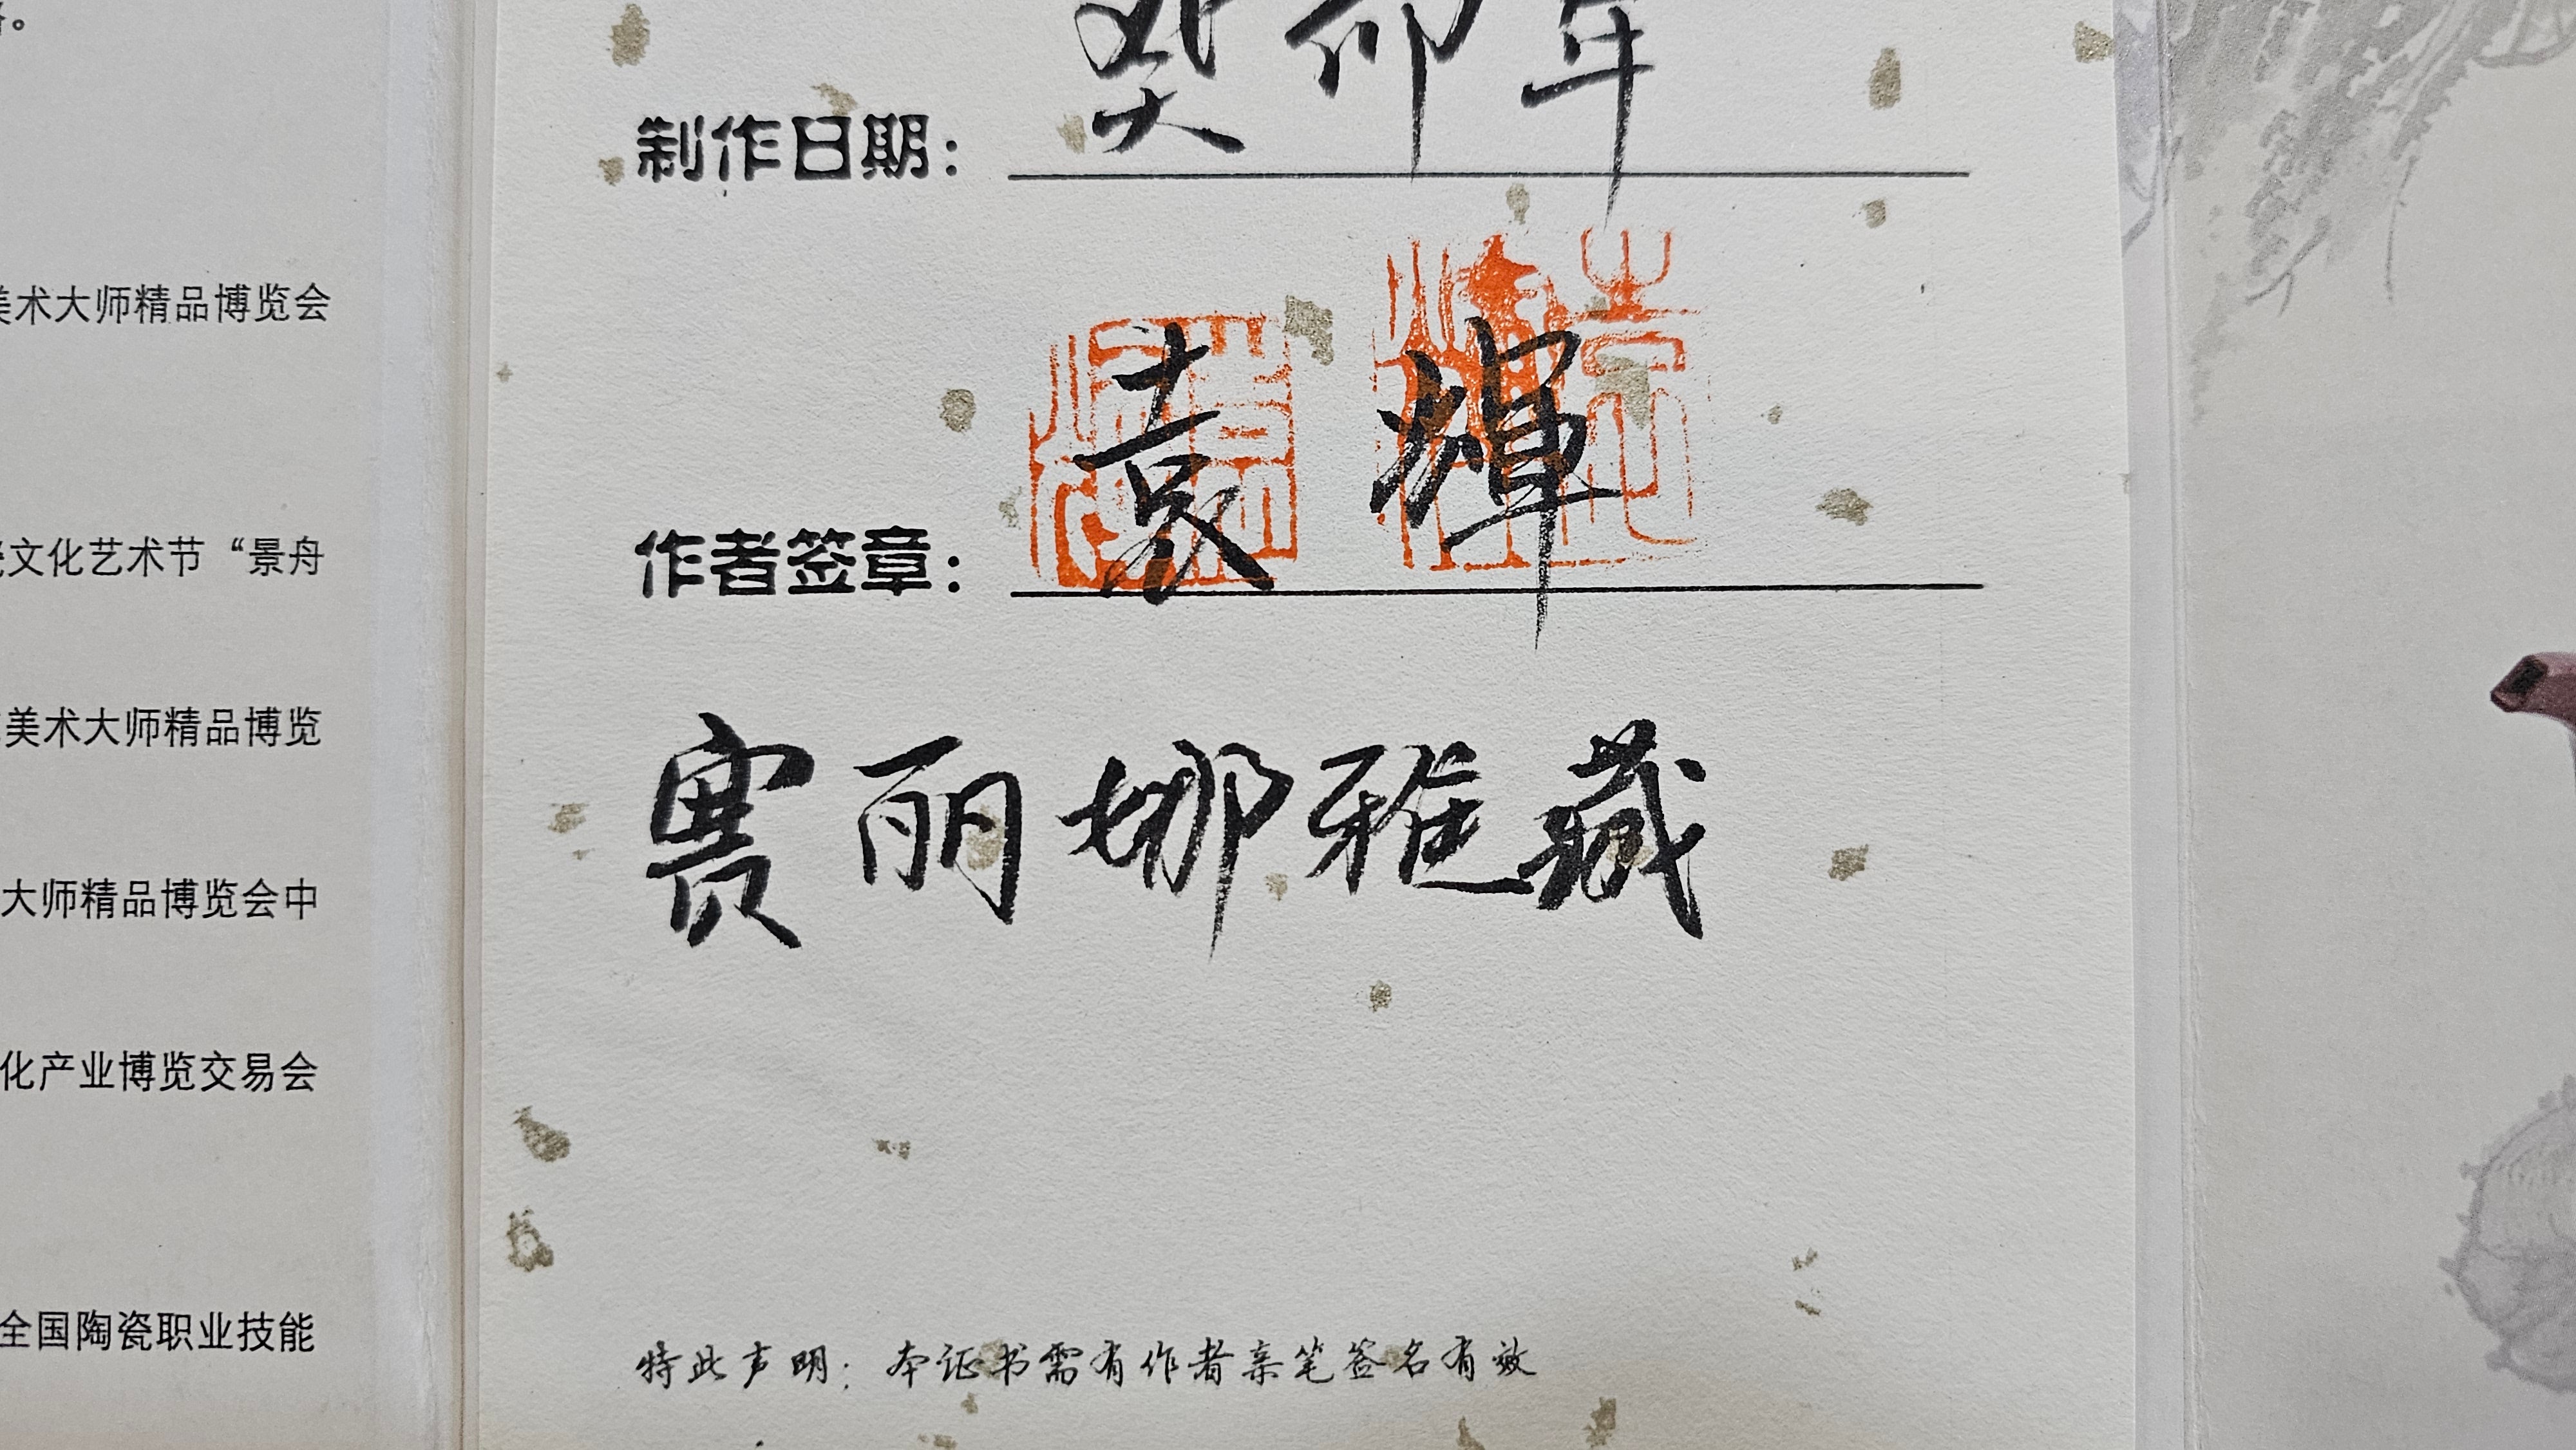 美术大师精品博览会
文化艺术节“景舟
美术大师精品博览
大师精品博览会中
化产业博览交易会
全国陶瓷职业技能
制作日期：癸卯年
作者签章：袁輝
赛丽娜雅藏
特此声明：本证书需有作者亲笔签名有效